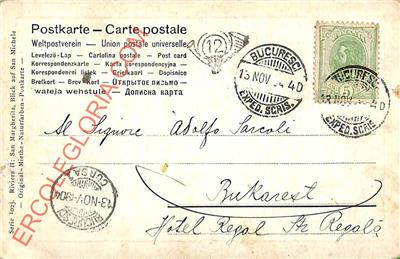 Postkarte - Carte postale
Weltpostverein - Union postale universelle
Levelező-Lap - Cartolina postale - Post card
Korespondenzkarte - Karta korespondencyjna
Korespondenční lístek - Briefkaart - Dopisnice
Brefkort - Brev-Kort - ОТКРЫТОЕ ПИСЬМО
ДОПИСНА КАРТА
12
BUCURESCI
13 NOV 4D
EXPED. SCRIS.
BUCURESCI
13 NOV 4D
EXPED. SCRIS.
5
Al Signore Adolfo Sarcoli
Bukarest
Hotel Regal Str Regală
13-NOV-904
CURSA
Serie 1023. Riviera II: San Margherita, Blick auf San Michele
Original-Miethe-Naturfarben-Postkarte
ERCOLEGLORIA.COM